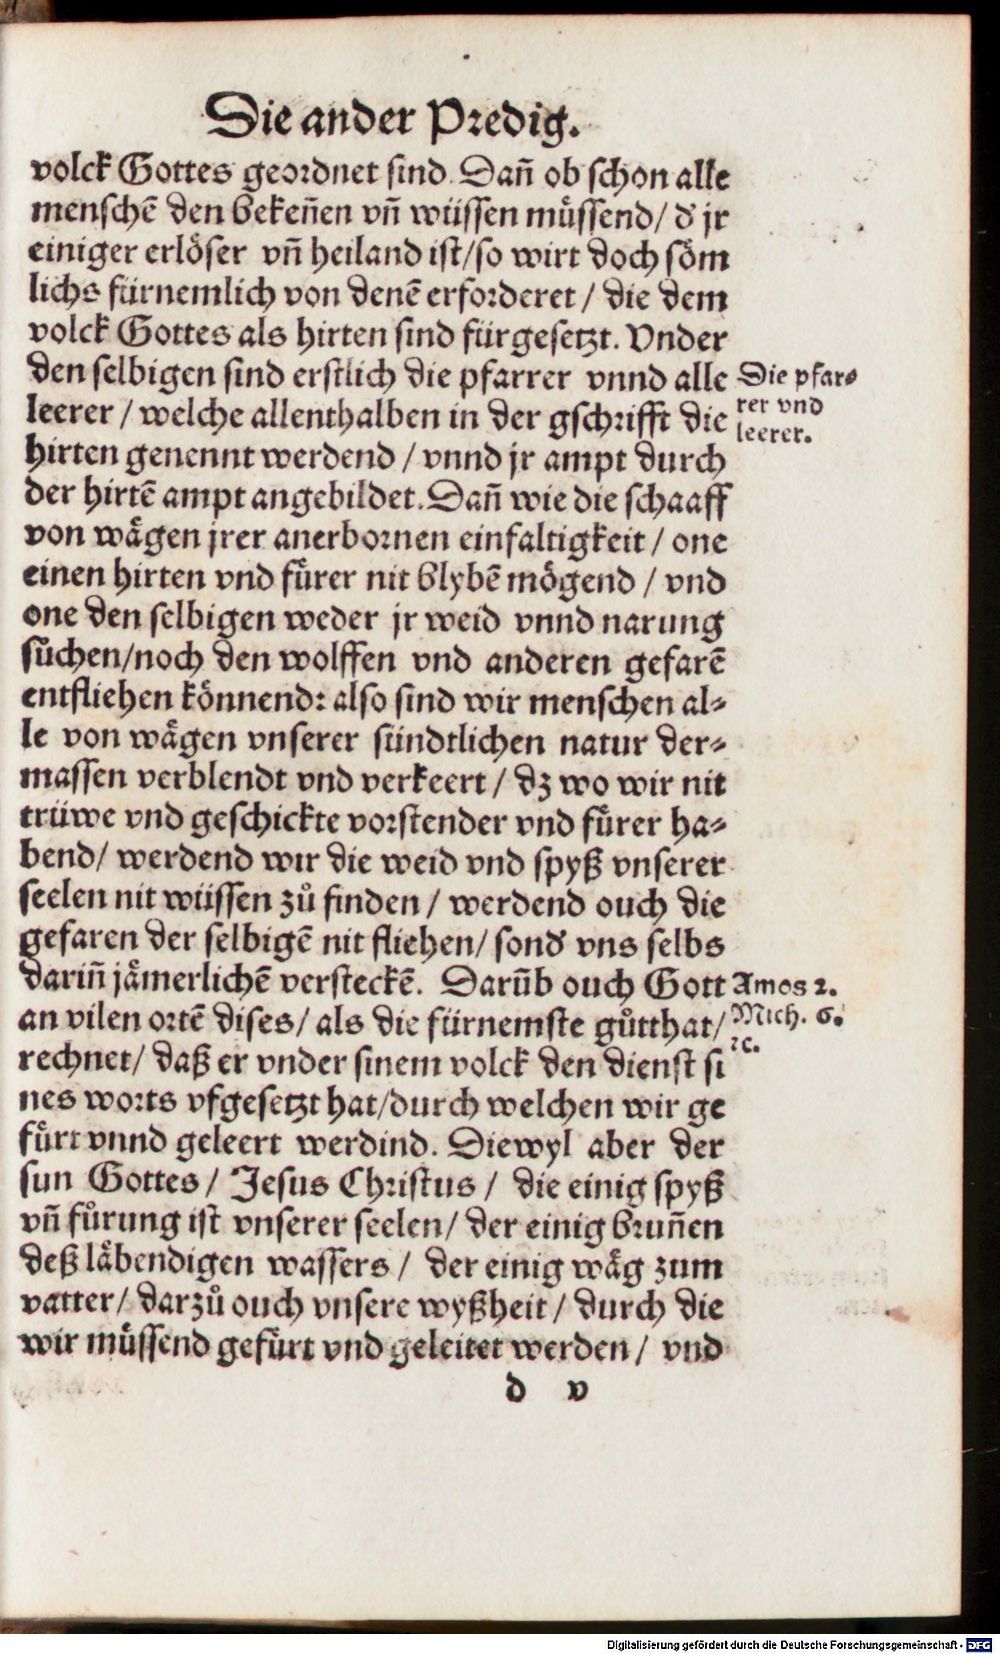 Die ander Predig.
volck Gottes geordnet sind. Dañ ob schon alle
menschẽ den bekeñen vñ wüssen müssend/ d' jr
einiger erlöser vñ heiland ist/so wirt doch söm
lichs fürnemlich von denẽ erforderet / die dem
volck Gottes als hirten sind fürgesetzt. Vnder
den selbigen sind erstlich die pfarrer vnnd alle
Die pfar⸗
rer vnd
leerer.
leerer / welche allenthalben in der gschrifft die
hirten genennt werdend / vnnd jr ampt durch
der hirtẽ ampt angebildet. Dañ wie die schaaff
von wågen jrer anerbornen einfaltigkeit / one
einen hirten vnd fürer nit blybẽ mögend / vnd
one den selbigen weder jr weid vnnd narung
sůchen/noch den wolffen vnd anderen gefarẽ
entfliehen könnend: also sind wir menschen al⸗
le von wägen vnserer sündtlichen natur der⸗
massen verblendt vnd verkeert / dz wo wir nit
trüwe vnd geschickte vorstender vnd fürer ha⸗
bend/ werdend wir die weid vnd spyß vnserer
seelen nit wüssen zů finden / werdend ouch die
gefaren der selbigẽ nit fliehen/ sond' vns selbs
dariñ jämerlichẽ versteckẽ. Darũb ouch Gott
Amos 2.
Mich. 6.
ꝛc.
an vilen ortẽ dises/ als die fürnemste gůtthat/
rechnet/ daß er vnder sinem volck den dienst si
nes worts vfgesetzt hat/durch welchen wir ge
fürt vnnd geleert werdind. Diewyl aber der
sun Gottes / Jesus Christus / die einig spyß
vñ fůrung ist vnserer seelen/ der einig bruñen
deß läbendigen wassers / der einig wäg zum
vatter/ darzů ouch vnsere wyßheit / durch die
wir müssend gefürt vnd geleitet werden / vnd
d v
Digitalisierung gefördert durch die Deutsche Forschungsgemeinschaft - DFG